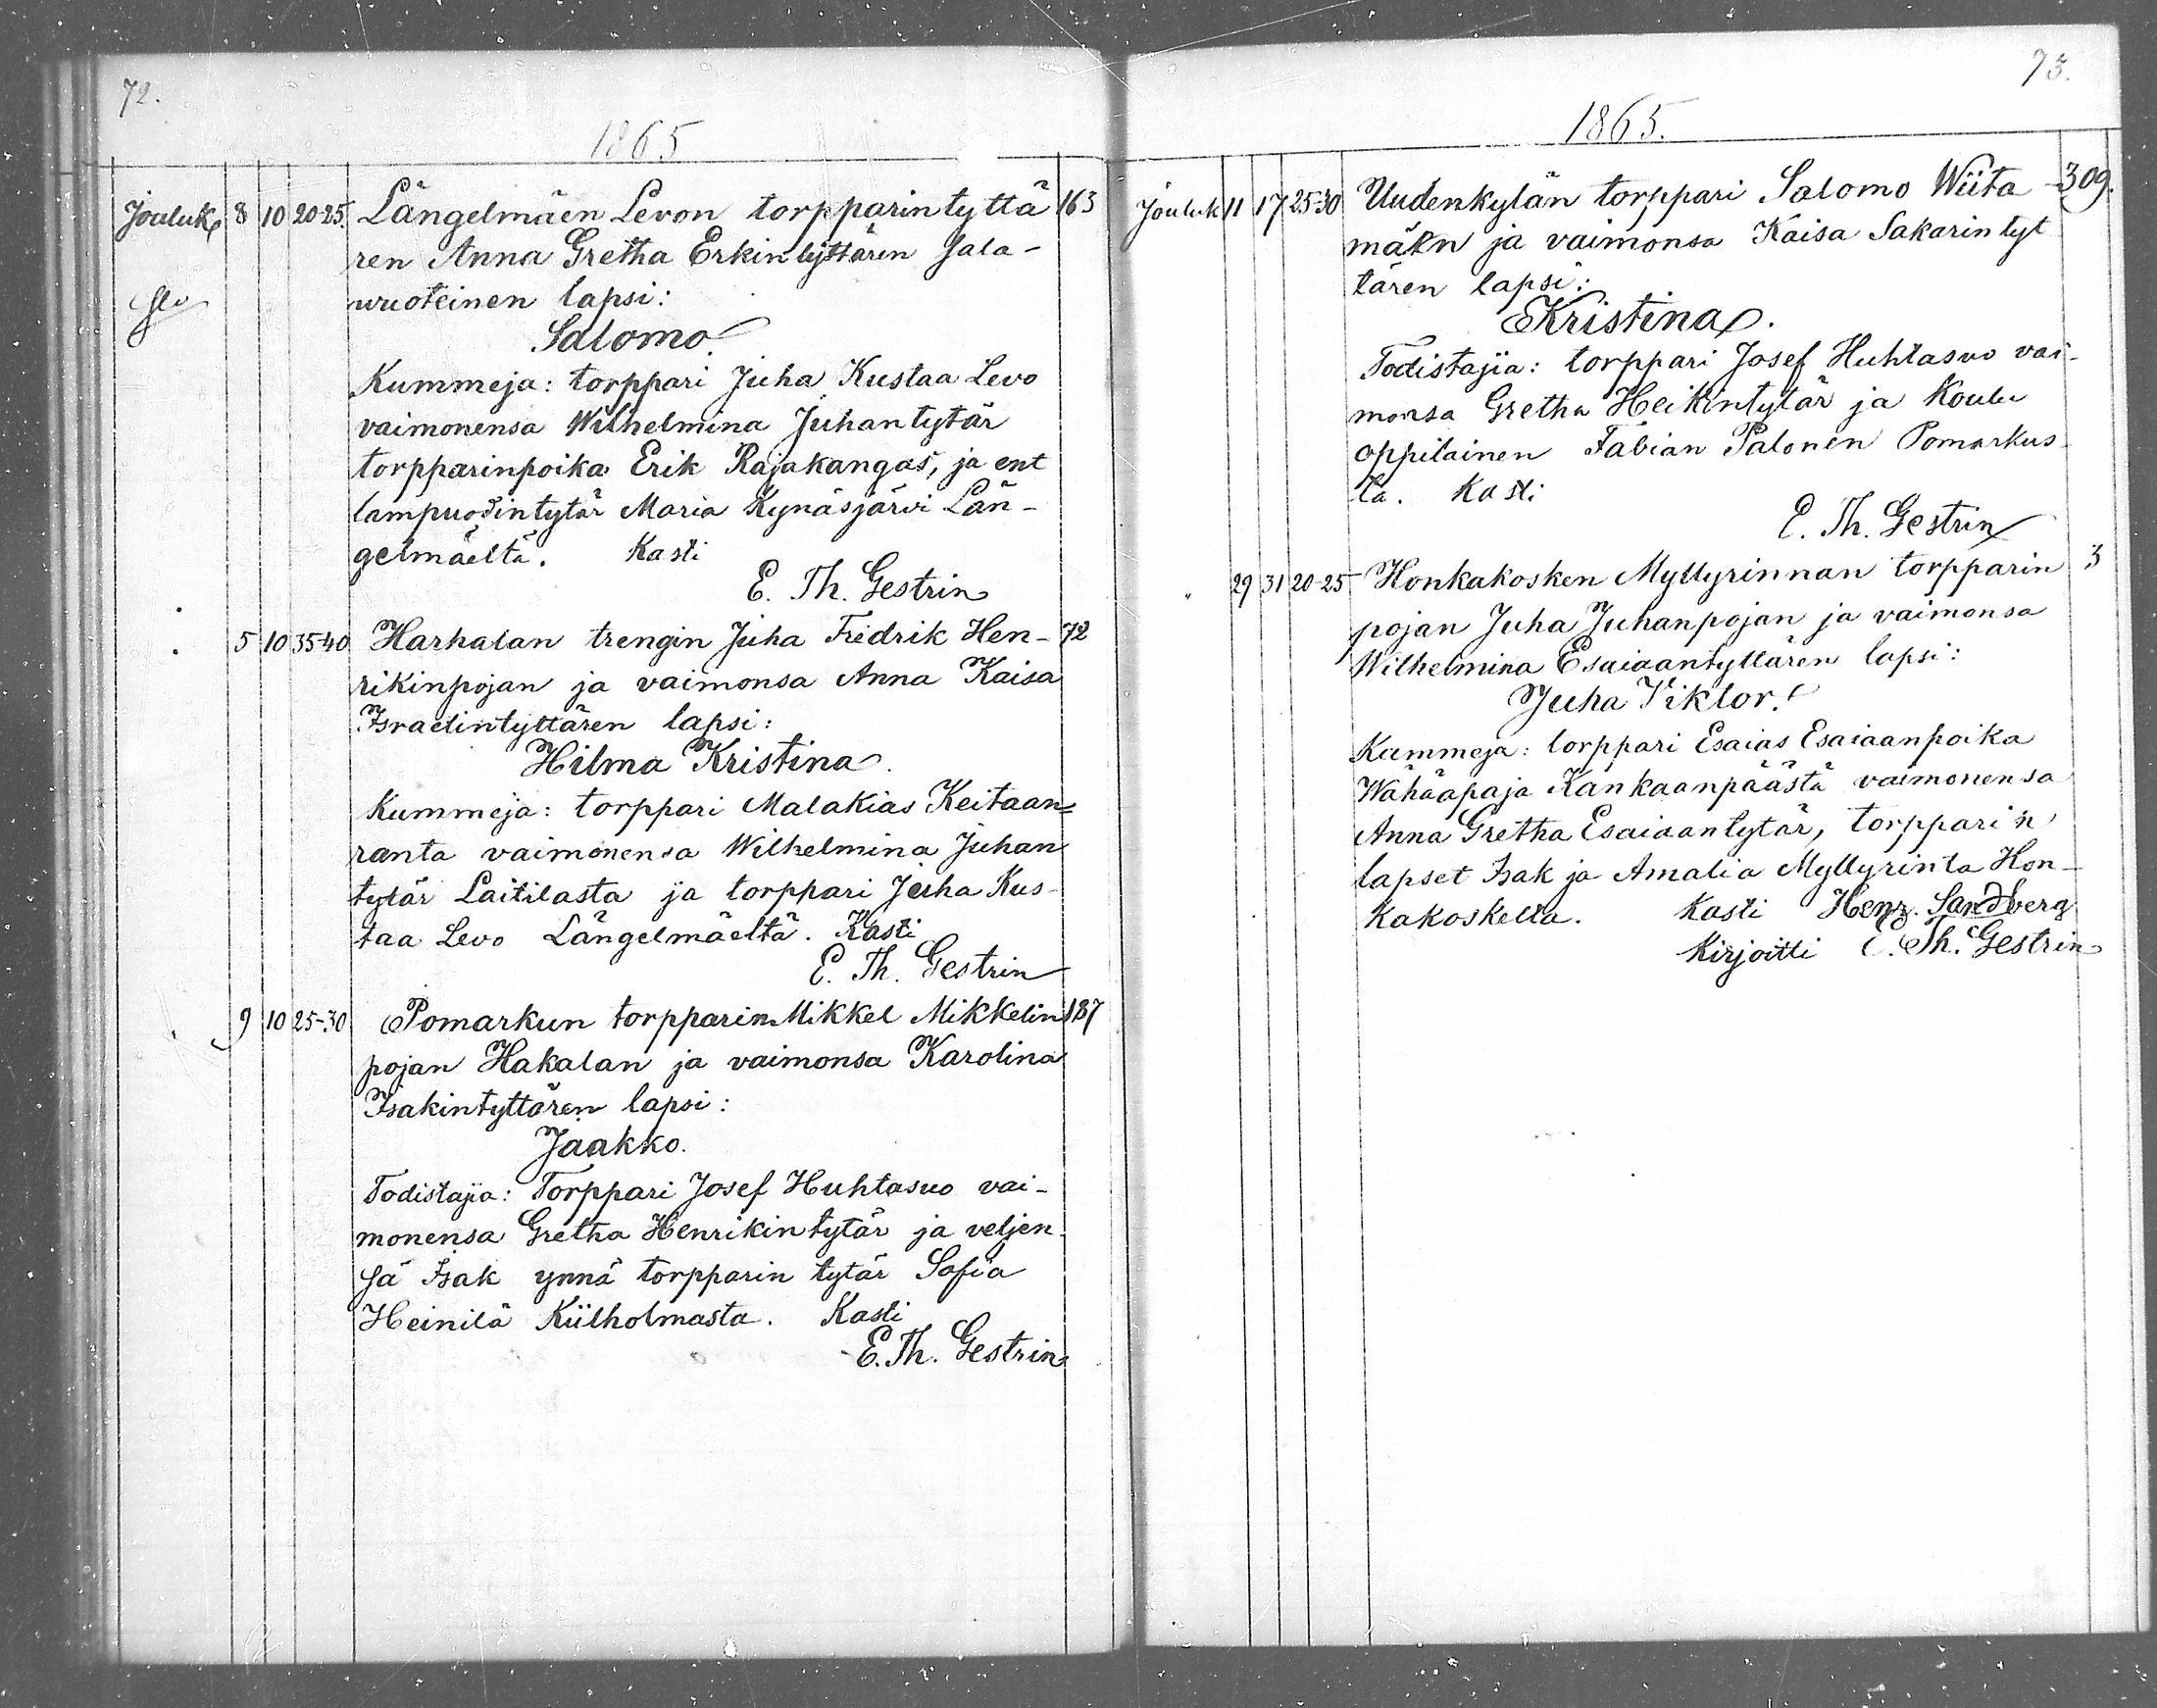 72.
1865
Jouluk 8 10 20-25. Längelmäen Levon torpparintyttä 163
ren Anna Gretha Erkintyttären sala-
wuoteinen lapsi:
Salomo
Kummeja: torppari Juha Kustaa Levo
vaimonensa Wilhelmina Juhantytär
torpparinpoika Erik Rajakangas, ja ent
lampuodintytär Maria Kynäsjärvi Län-
gelmäeltä. Kasti
E. Th. Gestrin
5 10 35-40 Harhalan trengin Juha Fredrik Hen- 72
rikinpojan ja vaimonsa Anna Kaisa
Israelintyttären lapsi:
Hilma Kristina.
Kummeja: torppari Malakias Keitaan=
ranta vaimonensa Wilhelmina Juhan
tytär Laitilasta ja torppari Juha Kus-
taa Levo Längelmäeltä. Kasti
E. Th. Gestrin
9 10 25-30 Pomarkun torpparin Mikkel Mikkelin 187
pojan Hakalan ja vaimonsa Karolina
Isakintyttären lapsi:
Jaakko.
Todistajia: Torppari Josef Huhtasuo vai-
monensa Gretha Henrikintytär ja veljen-
sä Isak ynnä torpparin tytär Sofia
Heinilä Kiilholmasta. Kasti
E. Th. Gestrin
73.
1865.
Jouluk 11 17 25-30 Uudenkylän torppari Salomo Wiita- 309.
mäen ja vaimonsa Kaisa Sakarintyt
tären lapsi:
Kristina.
Todistajia: torppari Josef Huhtasuo vai-
monsa Gretha Heikintytär ja Koulu
oppilainen Fabian Palonen Pomarkus-
ta. Kasti
E. Th. Gestrin
" 29 31 20-25 Honkakosken Myllyrinnan torpparin 3
pojan Juha Juhanpojan ja vaimonsa
Wilhelmina Esaiaantyttären lapsi:
Juha Viktor.
Kummeja: torppari Esaias Esaiaanpoika
Wähäapaja Kankaanpäästä vaimonensa
Anna Gretha Esaiaantytär, torpparin
lapset Isak ja Amalia Myllyrinta Hon-
kakoskelta. Kasti Henr. Sandberg
Kirjoitti E. Th. Gestrin